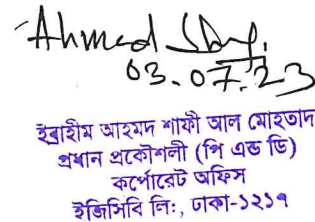 Ahmed Shafi
03.07.23
ইব্রাহীম আহমদ শাফী আল মোহতাদ
প্রধান প্রকৌশলী (পি এন্ড ডি)
কর্পোরেট অফিস
ইজিসিবি লিঃ, ঢাকা-১২১৭